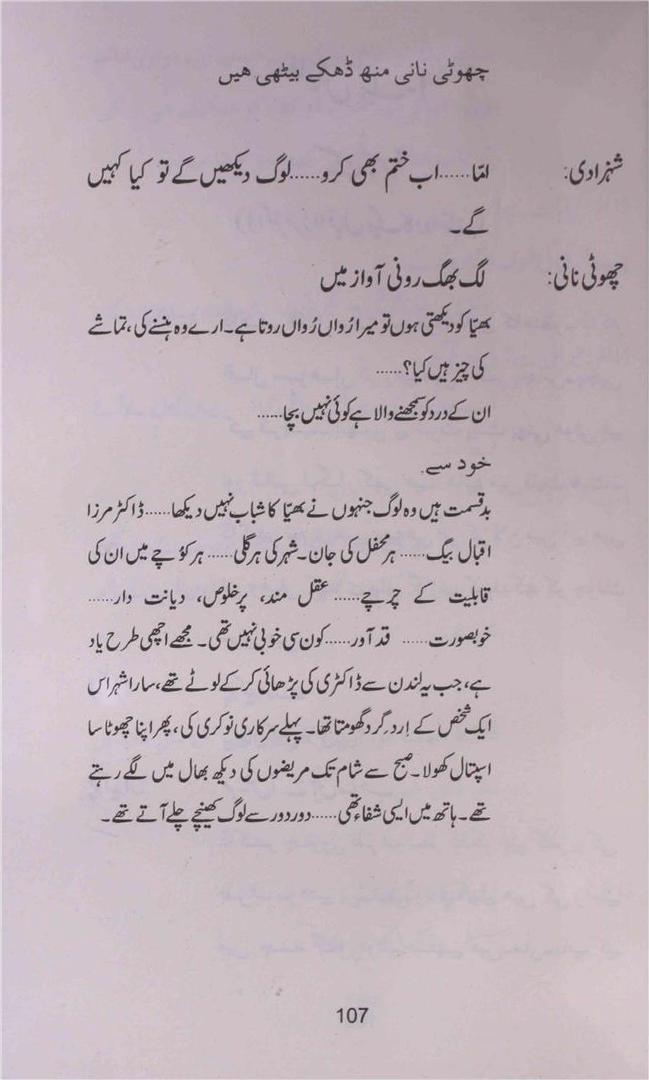 چھوٹی نانی منھ ڈھکے بیٹھی ھیں
شہزادی: امّا......اب ختم بھی کرو......لوگ دیکھیں گے تو کیا کہیں
گے۔
چھوٹی نانی: لگ بھگ رونی آواز میں
بھیّا کو دیکھتی ہوں تو میرا رُواں رُواں روتا ہے۔ ارے وہ ہنسنے کی، تماشے
کی چیز ہیں کیا؟......
ان کے درد کو سمجھنے والا ہے کوئی نہیں بچا......
خود سے
بدقسمت ہیں وہ لوگ جنہوں نے بھیّا کا شباب نہیں دیکھا...... ڈاکٹر مرزا
اقبال بیگ...... ہر محفل کی جان۔ شہر کی ہر گلی...... ہر کوُچے میں ان کی
قابلیت کے چرچے...... عقل مند، پرخلوص، دیانت دار......
خوبصورت...... قد آور...... کون سی خوبی نہیں تھی۔ مجھے اچھی طرح یاد
ہے، جب یہ لندن سے ڈاکٹری کی پڑھائی کرکے لوٹے تھے، سارا شہر اس
ایک شخص کے اِرد گرد گھومتا تھا۔ پہلے سرکاری نوکری کی، پھر اپنا چھوٹا سا
اسپتال کھولا۔ صبح سے شام تک مریضوں کی دیکھ بھال میں لگے رہتے
تھے۔ ہاتھ میں ایسی شفاء تھی...... دور دور سے لوگ کھینچے چلے آتے تھے۔
107